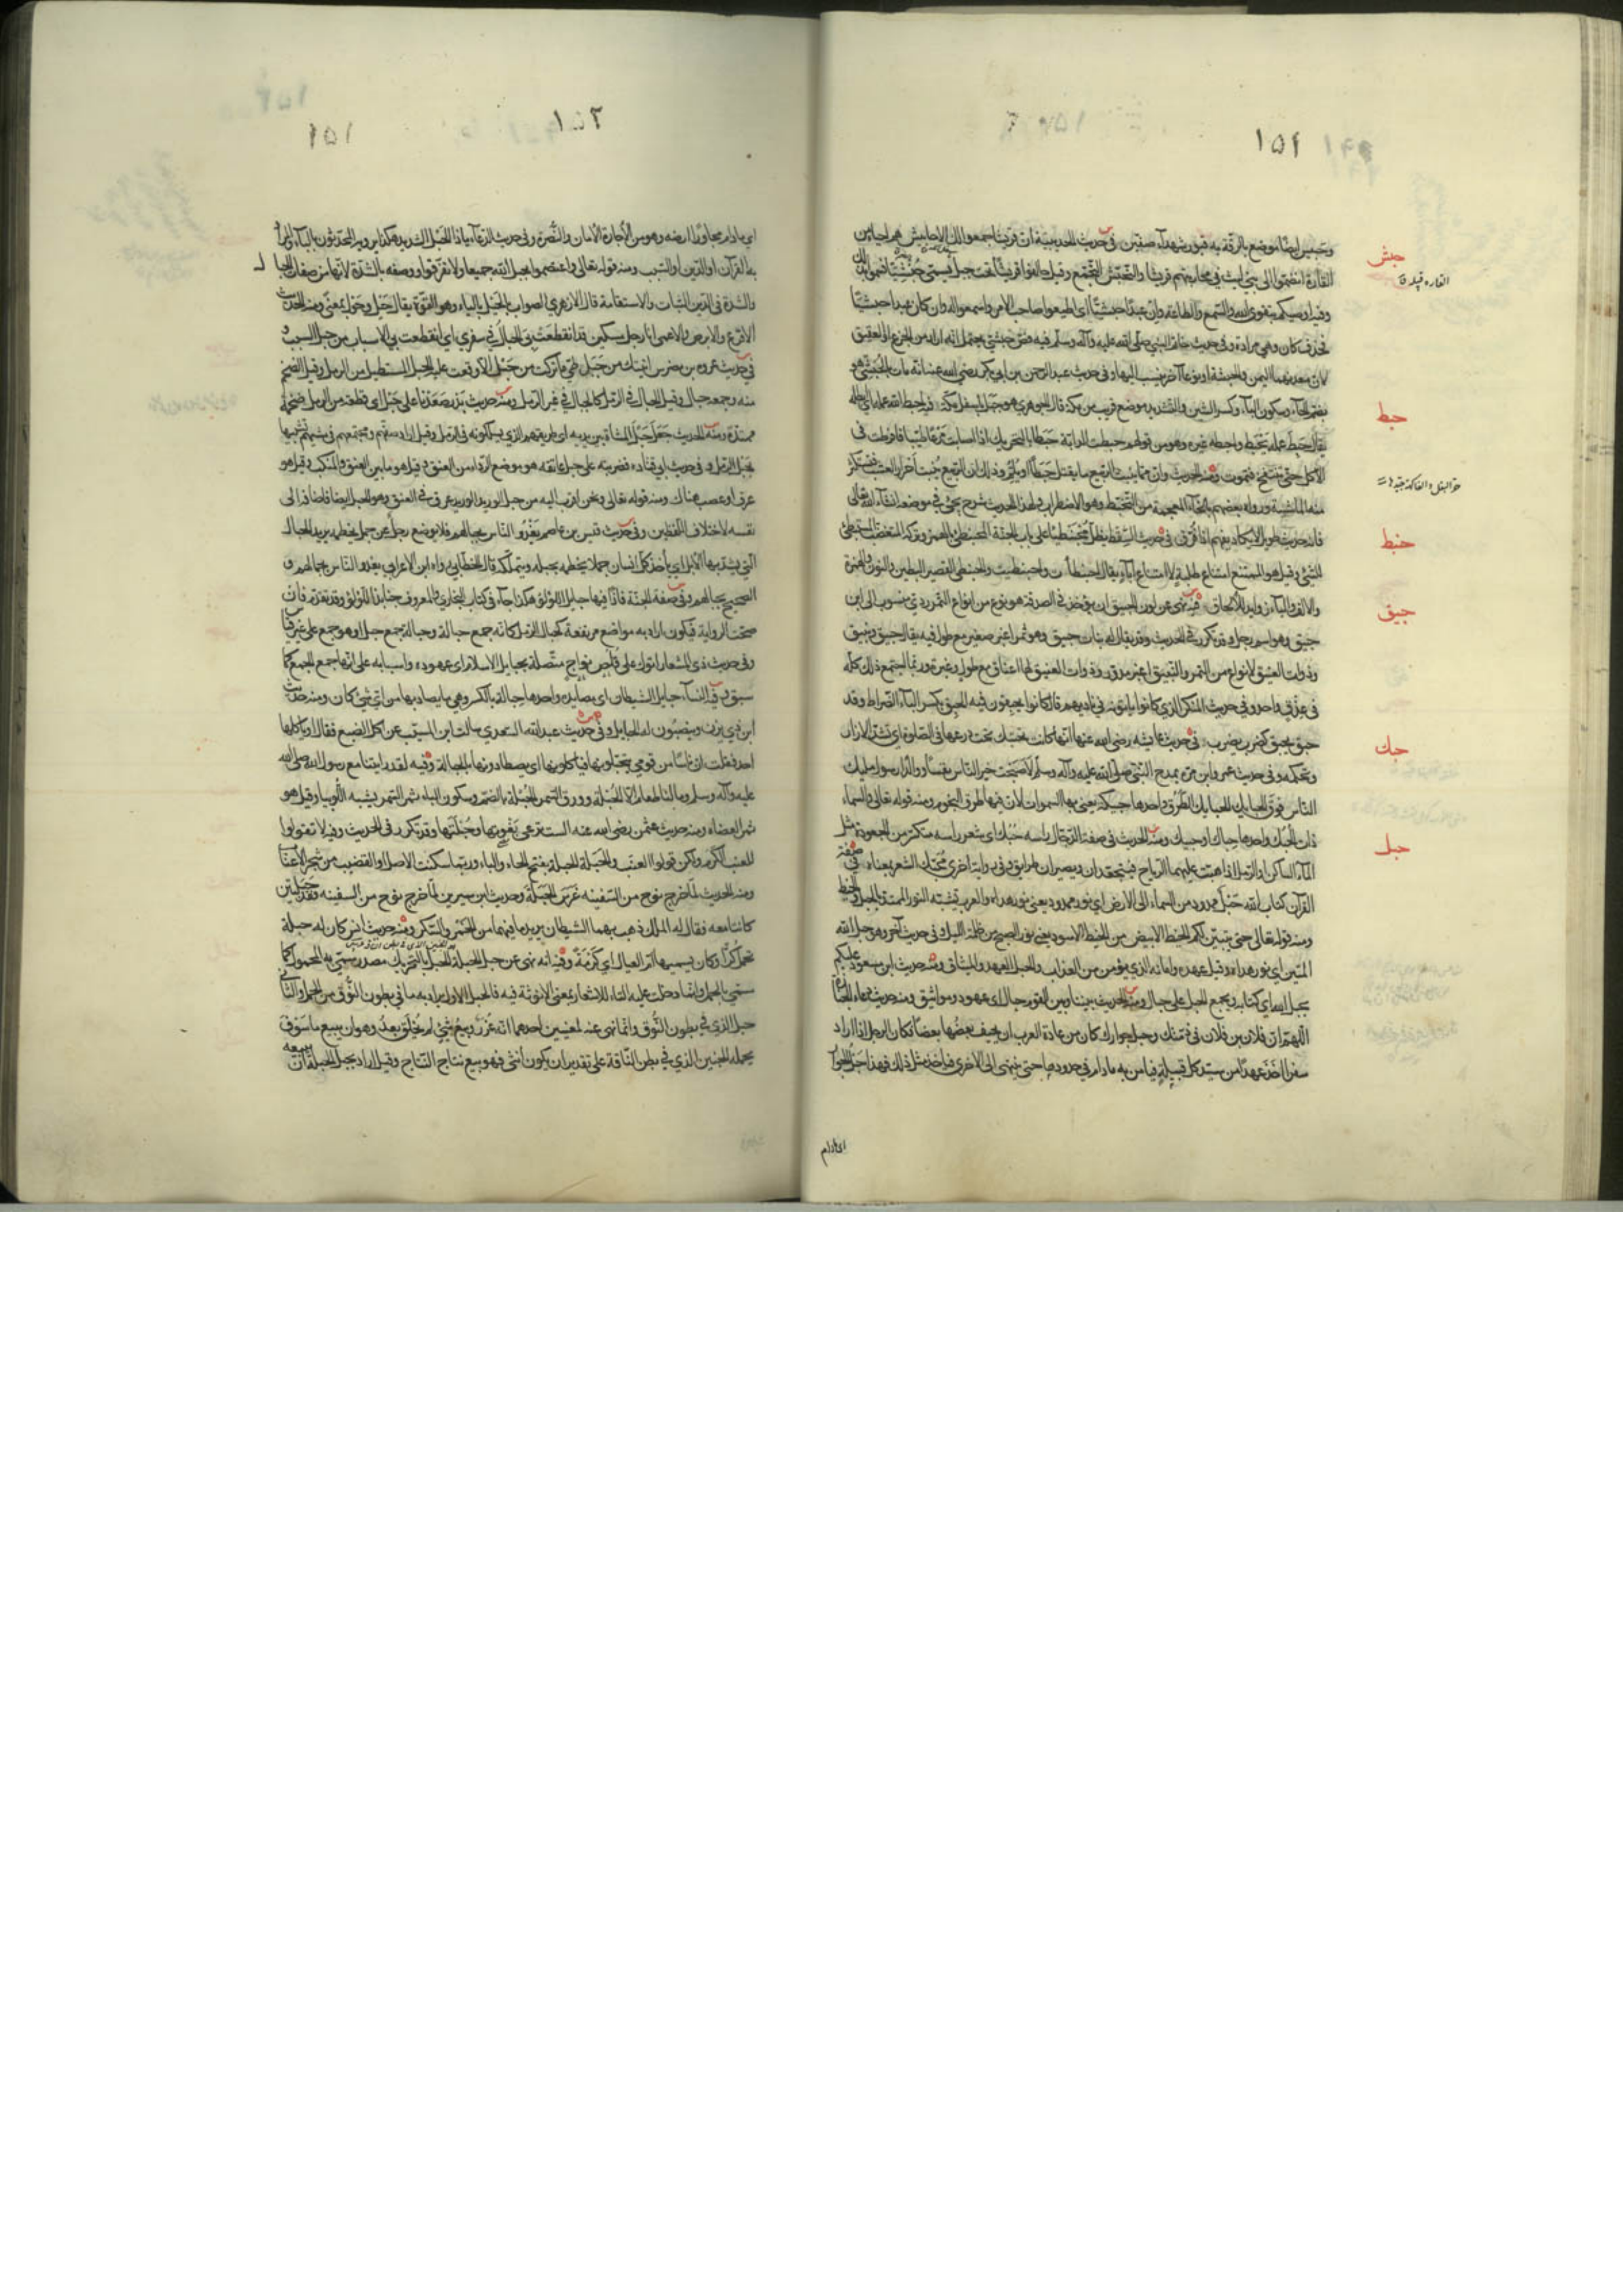 ١٥١
وحبيس ايضا موضع بالرقة به قبور شهداء صفين في حديث الحديبية ان قريشا جمعوا لك الاحابيش هم احياء من
القارة انضموا الى بني ليث في محاربتهم قريشا والتحبش التجمع وقيل حالفوا قريشا تحت جبل يسمى حبشيا فسموا بذلك
وفيه اوصيكم بتقوى الله والسمع والطاعة وان عبدا حبشيا اي اطيعوا صاحب الامر واسمعوا له وان كان عبدا حبشيا
فحذف كان وهي مرادة وفي حديث خاتم النبي صلى الله عليه وآله وسلم فيه فص حبشي يحتمل انه اراد من الجزع او العقيق
لان معدنهما اليمن والحبشة او نوعا آخر ينسب اليها وفي حديث عبد الرحمن بن ابي بكر رضي الله عنه انه مات بالحبشي هو
بضم الحاء وسكون الباء وكسر الشين والتشديد موضع قريب من مكة قال الجوهري هو جبل باسفل مكة فيه احبط الله عمله اي ابطله
يقال حبط عمله يحبط واحبطه غيره وهو من قولهم حبطت الدابة حبطا بالتحريك اذا اصابت مرعا طيبا فافرطت في
الاكل حتى تنتفخ فتموت ومنه الحديث وان مما ينبت الربيع ما يقتل حبطا او يلم وذلك ان الربيع ينبت احرار العشب فتستكثر
منه الماشية ورواه بعضهم بالخاء المعجمة من التخبط وهو الاضطراب ولهذا الحديث شرح يجيء في موضعه ان شاء الله تعالى
فانه حديث طويل لا يكاد يفهم اذا فرق في حديث السقط يظل محبنطيا على باب الجنة المحبنطئ بالهمز وتركه المتغضب المستبطئ
للشيء وقيل هو الممتنع امتناع طلبة لا امتناع اباء يقال احبنطأت واحبنطيت والحبنطى القصير البطين والنون والهمزة
والالف والياء زوايد للالحاق فيه نهى عن لون الحبيق ان يؤخذ في الصدقة هو نوع من انواع التمر رديء منسوب الى ابن
حبيق وهو اسم رجل وقد تكرر في الحديث وقد يقال له بنات حبيق وهو تمر اغبر صغير مع طول فيه يقال حبيق ونبيق
وذوات العنيق لانواع من التمر والنبيق اغبر مدور وذوات العنيق لها اعناق مع طول وغبرة وربما اجتمع ذلك كله
في عذق واحد وفي حديث المنكر الذي كانوا ياتونه في ناديهم قال كانوا يحبقون فيه الحبق بكسر الباء الضراط وقد
حبق يحبق كضرب يضرب في حديث عايشة رضي الله عنها انها كانت تحتبك تحت درعها في الصلوة اي تشد الازار
وتحكمه وفي حديث عمرو بن مرة يمدح النبي صلى الله عليه وآله وسلم لاصبحت خير الناس نفسا ووالدا رسول مليك
الناس فوق الحبايك الحبايك الطرق واحدها حبيكة يعني بها السموات لان فيها طرق النجوم ومنه قوله تعالى والسماء
ذات الحبك واحدها حباك او حبيك ومنه الحديث في صفة الدجال راسه حبك اي شعر راسه متكسر من الجعودة مثل
الماء الساكن او الرمل اذا هبت عليهما الرياح فيتجعدان ويصيران طرايق وفي رواية اخرى محبك الشعر بمعناه في صفة
القرآن كتاب الله حبل ممدود من السماء الى الارض اي نور ممدود يعني نور هداه والعرب تشبه النور الممتد بالحبل والخيط
ومنه قوله تعالى حتى يتبين لكم الخيط الابيض من الخيط الاسود يعني نور الصبح من ظلمة الليل وفي حديث آخر وهو حبل الله
المتين اي نور هداه وقيل عهده وامانه الذي يؤمن من العذاب والحبل العهد والميثاق ومنه حديث ابن مسعود عليكم
بحبل الله اي كتابه ويجمع الحبل على حبال ومنه الحديث بيننا وبين القوم حبال اي عهود ومواثيق ومنه حديث دعاء الجنازة
اللهم ان فلان بن فلان في ذمتك وحبل جوارك كان من عادة العرب ان يخيف بعضها بعضا فكان الرجل اذا اراد
سفرا اخذ عهدا من سيد كل قبيلة فيامن به ما دام في حدودها حتى ينتهي الى الاخرى فياخذ مثل ذلك فهذا حبل الجوار
اي ما دام
حبش
القارة قبيلة
حبط
حبنط
حبق
حبك
حبل
١٥٢
١٥١
اي ما دام مجاورا ارضه وهو من الاجارة الامان والنصرة وفي حديث الدعاء يا ذا الحبل الشديد هكذا يرويه المحدثون بالباء والمراد
به القرآن او الدين او السبب ومنه قوله تعالى واعتصموا بحبل الله جميعا ولا تفرقوا ووصفه بالشدة لانها من صفات الحبال
والشدة في الدين الثبات والاستقامة قال الازهري الصواب الحيل بالياء وهو القوة يقال حيل وحول بمعنى ومنه الحديث
الاقرع والابرص والاعمى انا رجل مسكين قد انقطعت بي الحبال في سفري اي انقطعت بي الاسباب من الحبل السبب و
في حديث عروة بن مضرس اتيتك من جبلي طي ما تركت من حبل الا وقفت عليه الحبل المستطيل من الرمل وقيل الضخم
منه وجمعه حبال وقيل الحبال في الرمل كالجبال في غير الرمل ومنه حديث بدر صعدنا على حبل اي قطعة من الرمل ضخمة
ممتدة ومنه الحديث وجعل حبل المشاة بين يديه اي طريقهم الذي يسلكونه في الرمل وقيل اراد صفهم ومجتمعهم في مشيهم تشبيها
بحبل الرمل وفي حديث ابي قتادة فضربته على حبل عاتقه هو موضع الرداء من العنق وقيل هو ما بين العنق والمنكب وقيل هو
عرق او عصب هناك ومنه قوله تعالى ونحن اقرب اليه من حبل الوريد الوريد عرق في العنق وهو الحبل ايضا فاضافه الى
نفسه لاختلاف اللفظين وفي حديث قيس بن عاصم يغدو الناس بحبالهم فلا يوزع رجل عن جمل يخطمه يريد الحبال
التي يشد بها الابل اي ياخذ كل انسان جملا يخطمه بحبله ويتملكه قال الخطابي رواه ابن الاعرابي يغدو الناس بجمالهم و
الصحيح بحبالهم وفي صفة الجنة فاذا فيها حبايل اللؤلؤ هكذا جاء في كتاب البخاري والمعروف جنابذ اللؤلؤ وقد تقدم فان
صحت الرواية فيكون اراد به مواضع مرتفعة كحبال الرمل كانه جمع حبالة وحبالة جمع حبل او هو جمع على غير قياس
وفي حديث ذي المشعار اتوك على قلص نواج متصلة بحبايل الاسلام اي عهوده واسبابه على انها جمع الجمع كما
سبق وفيه النساء حبايل الشيطان اي مصايده واحدها حبالة بالكسر وهي ما يصاد بها من اي شيء كان ومنه حديث
ابن ذي يزن وينصبون له الحبايل وفي حديث عبد الله السعدي سالت ابن المسيب عن اكل الضبع فقال او ياكلها
احد فقلت ان ناسا من قومي يتحبلونها فياكلونها اي يصطادونها بالحبالة وفيه لقد رايتنا مع رسول الله صلى الله
عليه وآله وسلم وما لنا طعام الا الحبلة وورق السمر الحبلة بالضم وسكون الباء ثمر السمر يشبه اللوبيا وقيل هو
ثمر العضاه ومنه حديث عثمن رضي الله عنه الست ترعى معوتها وحبلتها وقد تكرر في الحديث وفيه لا تقولوا
للعنب الكرم ولكن قولوا العنب والحبلة الحبلة بفتح الحاء والباء وربما سكنت الاصل او القضيب من شجر الاعناب
ومنه الحديث لما خرج نوح من السفينة غرس الحبلة وحديث ابن سيرين لما خرج نوح من السفينة فقد حبلتين
كانتا معه فقال له الملك ذهب بهما الشيطان يريد ما فيهما من الخمر والسكر ومنه حديث انس كان له حبلة
تحمل كرا وكان يسميها ام العيال اي كرمة وفيه انه نهى عن حبل الحبلة الحبل بالتحريك مصدر سمي به المحمول كما
سمي بالحمل وانما دخلت عليه التاء للاشعار بمعنى الانوثة فيه فالحبل الاول يراد به ما في بطون النوق من الحمل والثاني
حبل الذي في بطون النوق وانما نهى عنه لمعنيين احدهما انه غرر وبيع شيء لم يخلق بعد وهو ان يبيع ما سوف
يحمله الجنين الذي في بطن الناقة على تقدير ان يكون انثى فهو بيع نتاج النتاج وقيل اراد بحبل الحبلة ان يبيعه